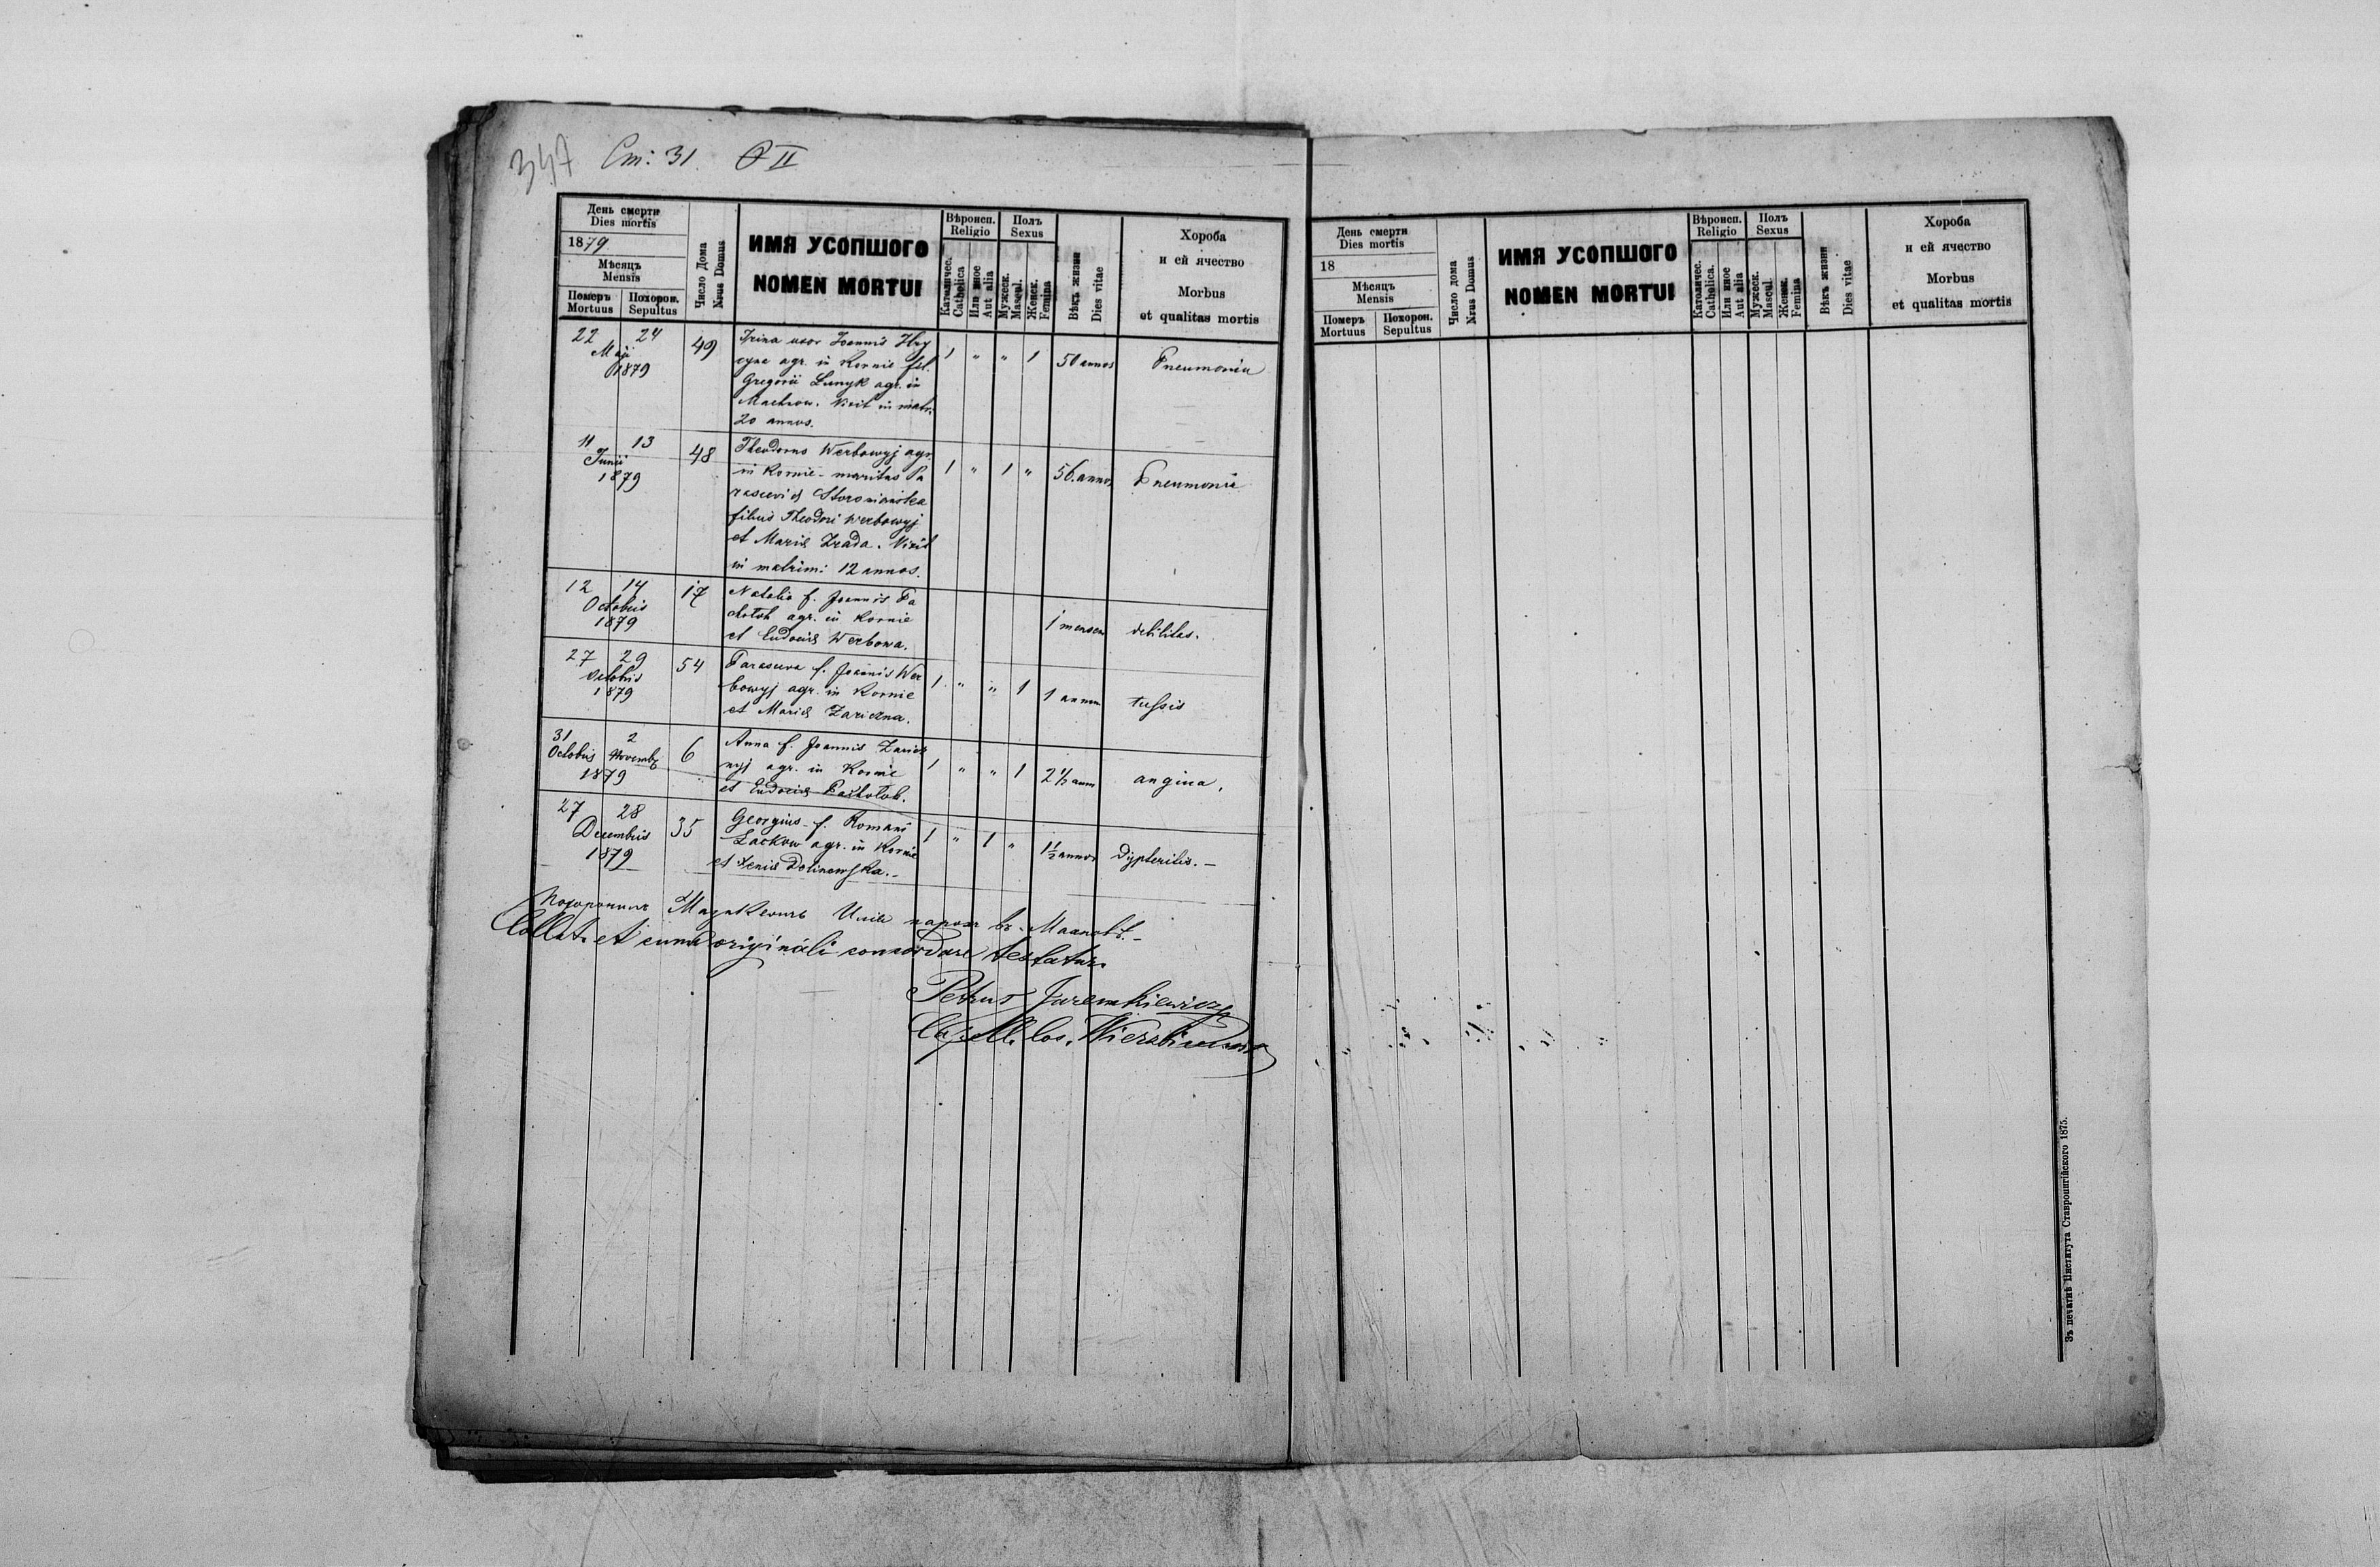 347 Ст: 31. II
День смерти
Dies mortis
1879.
Мѣсяцъ
Mensis
Померъ
Mortuus
Похорон.
Sepultus
Число Дома
Nrus Domus
ИМЯ УСОПШОГО
NOMEN MORTUI
Вѣроисп.
Religio
Католичес.
Catholica
Или иное
Aut alia
Полъ
Sexus
Мужеск.
Mascul.
Женск.
Femina
Вѣкъ жизни
Dies vitae
Хороба
и ей ячество
Morbus
et qualitas mortis
22 24
Maji
1879
49
Irina uxor Joannis Hry
cyna agr. in Kornie fil.
Gregorii Lunyk agr. in
Machnow. Vixit in matr.
20 annos.
1 " " 1
50 annos
Pneumonia
11 13
Junii
1879
48
Theodorus Werbowyj agr.
in Kornie - maritus Pa
rascevia
filius Theodori Werbowyj
et Maria Zrada. Vixit
in matrim: 12 annos.
1 " 1 "
56. annos
Pneumonia
12 14
Octobris
1879
17
Natalia f. Joannis Pa
choloh agr. in Kornie
et Eudocia Werbowa.
1 mensem
debilitas.
27 29
Octobris
1879
54
Parasceva f. Joannis Wer
bowyj agr. in Kornie
et Maria Zariczna.
1 " " 1
1 annum
tussis
31 2
Octobris Novemb.
1879
6
Anna f. Joannis Zaricz
nyj agr. in Kornie
et Eudocia Pacholok.
1 " " 1
2 1/2 ann
angina.
27 28
Decembris
1879
35
Georgius f. Romani
Lackow agr. in Kornie
et Xenia Dolinowska.-
1 " 1 "
1 1/2 annos
dypteritis.-
Похоронилъ парохъ въ Махновѣ.-
Collat. et cum originali concordare testatur.
Petrus Jaremkiewicz
День смерти
Dies mortis
18
Мѣсяцъ
Mensis
Померъ
Mortuus
Похорон.
Sepultus
Число дома
Nrus Domus
ИМЯ УСОПШОГО
NOMEN MORTUI
Вѣроисп.
Religio
Католичес.
Catholica.
Или иное
Aut alia
Полъ
Sexus
Мужеск.
Mascul.
Женск.
Femina
Вѣкъ жизни
Dies vitae
Хороба
и ей ячество
Morbus
et qualitas mortis
Зъ печатнѣ Института Ставропигійского 1875.